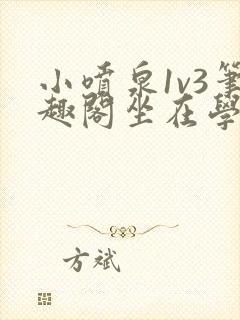 小噴泉1v3筆
趣閣坐在學
方斌